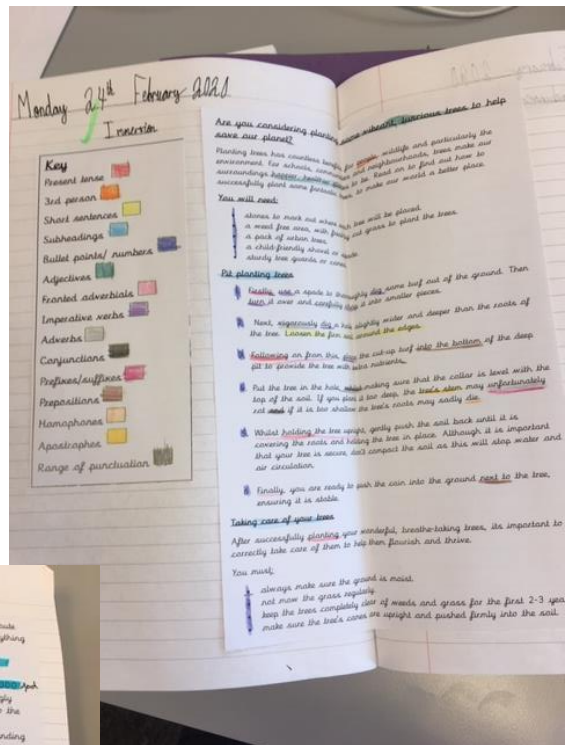 Monday 24th February 2020
Immersion
Key
Present tense
3rd person
Short sentences
Subheadings
Bullet points/ numbers
Adjectives
Fronted adverbials
Imperative verbs
Adverbs
Conjunctions
Prefixes/suffixes
Prepositions
Homophones
Apostrophes
Range of punctuation
Are you considering planting some vibrant, luscious trees to help
save our planet?
Planting trees has countless benefits for people, wildlife and particularly the
environment. For schools, communities and neighbourhoods, trees make our
surroundings happier, healthier places to be. Read on to find out how to
successfully plant some fantastic trees to make our world a better place.
You will need:
stones to mark out where each tree will be placed.
a weed free area, with freshly cut grass to plant the trees.
a pack of urban trees.
a child-friendly shovel or spade.
sturdy tree guards or canes.
Pit planting trees
Firstly, use a spade to thoroughly dig some turf out of the ground. Then
turn it over and carefully chop it into smaller pieces.
Next, vigorously dig a hole slightly wider and deeper than the roots of
the tree. Loosen the firm soil around the edges.
Following on from this, place the cut-up turf into the bottom of the deep
pit to provide the tree with extra nutrients.
Put the tree in the hole, whilst making sure that the collar is level with the
top of the soil. If you plant it too deep, the tree's stem may unfortunately
rot and if it is too shallow the tree's roots may sadly die.
Whilst holding the tree upright, gently push the soil back until it is
covering the roots and holding the tree in place. Although it is important
that your tree is secure, don't compact the soil as this will stop water and
air circulation.
Finally, you are ready to push the cain into the ground next to the tree,
ensuring it is stable.
Taking care of your trees
After successfully planting your wonderful, breathe-taking trees, its important to
correctly take care of them to help them flourish and thrive.
You must;
always make sure the ground is moist.
not mow the grass regularly.
keep the trees completely clear of weeds and grass for the first 2-3
make sure the tree's canes are upright and pushed firmly into the soil.